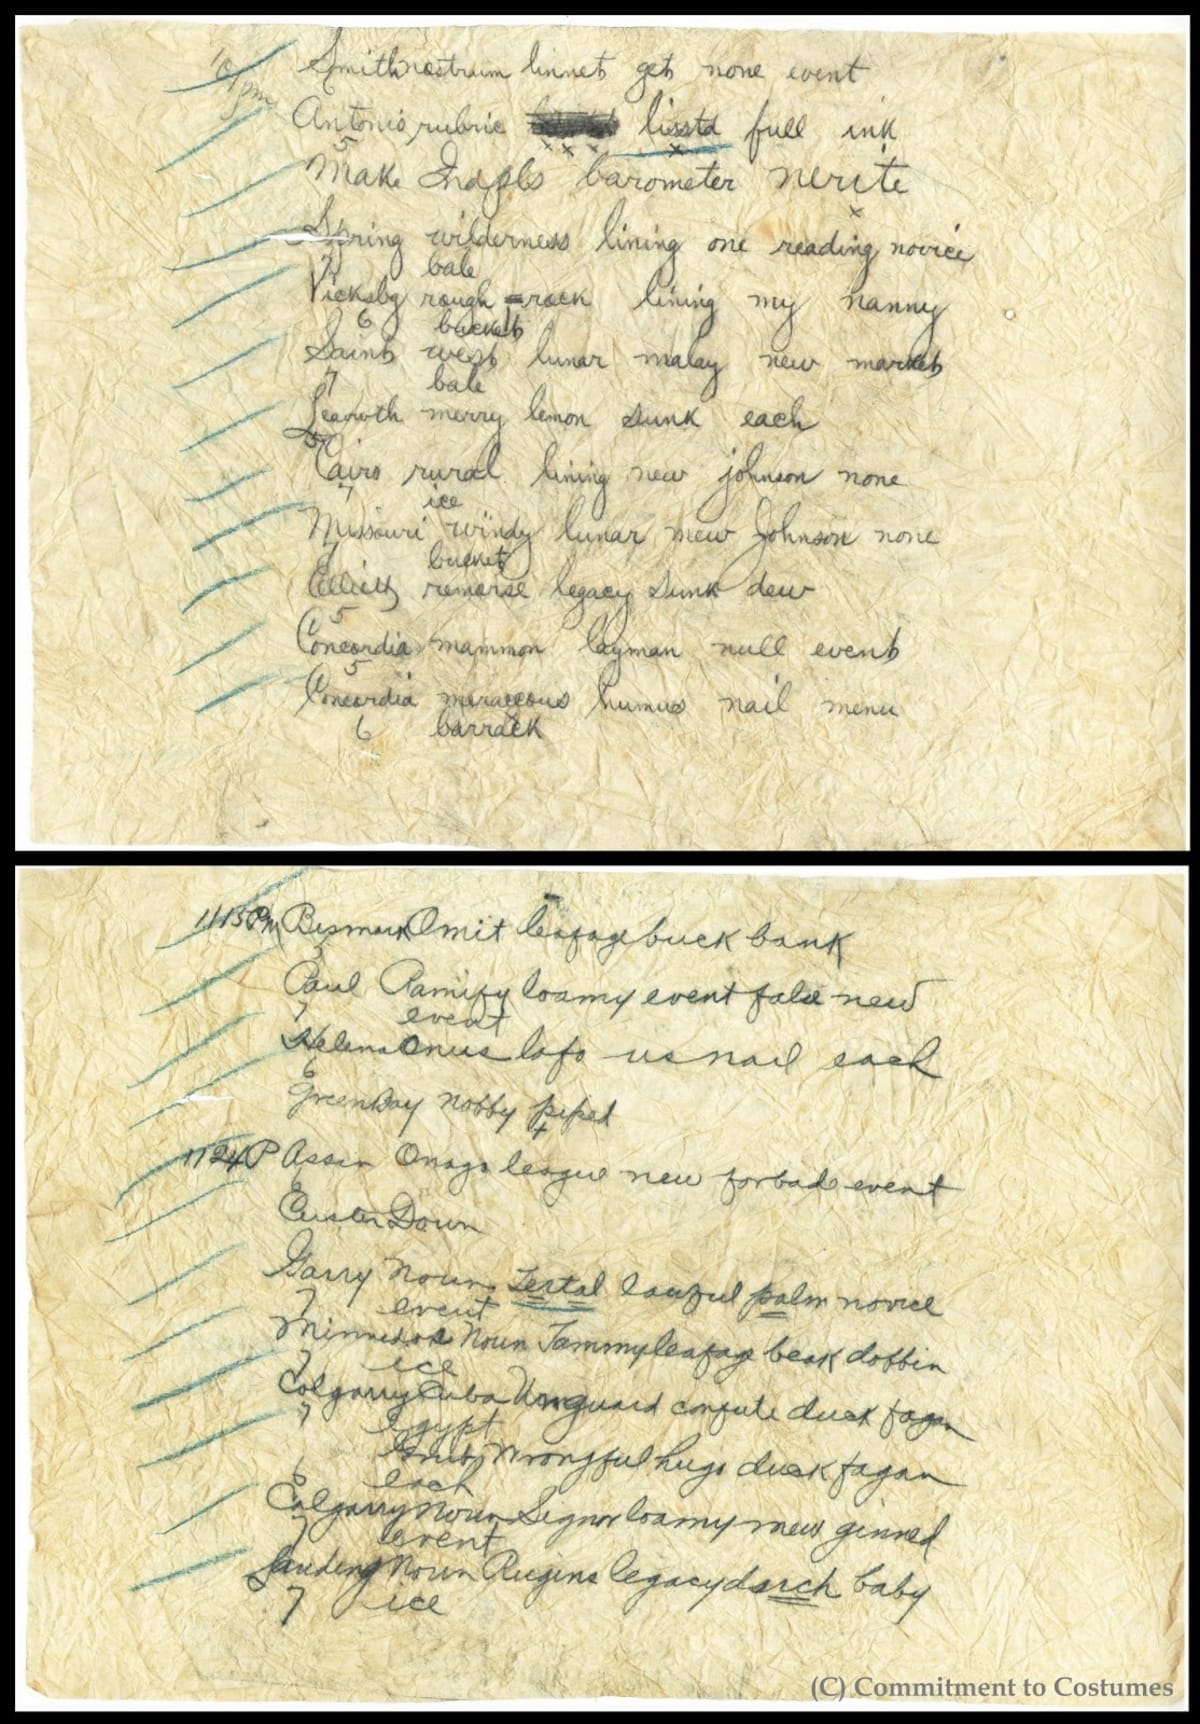 10 pm Smith nostrum linnet get none event
Antonio rubric lissta full ink
5
Make Indpls barometer nerite
Spring wilderness lining one reading novice
7 bale
Vicksbg rough rack lining my nanny
6 bucket
Saint west lunar malay new market
7 bale
Leavwth merry lemon sunk each
5
Cairo rural lining new johnson none
7 ice
Missouri windy lunar mew Johnson none
7 bucket
Elliott remorse legacy sunk dew
5
Concordia mammon layman null event
5
Concordia meraccous humus nail menu
6 barrack
1113 PM Bismark Omit leafage buck bank
Paul Ramify loamy event false new
7 event
Helena Onus lofo us nail each
6
Green Bay nobby piped
1124 P Assin Onago league new forbade event
6
Custer Down
Garry Noun Tertal lawful palm novice
7 event
Minnedos Noun Jammy leafage beak dobbin
7 ice
Calgarry Cuba Unguard confute duck fagan
7 Egypt
Grub wrongful hugo duck fagan
each
Calgarry Noun Signor loamy mew ginned
7 event
Landing Noun Rugins legacy dsrch baby
7 ice
(C) Commitment to Costumes